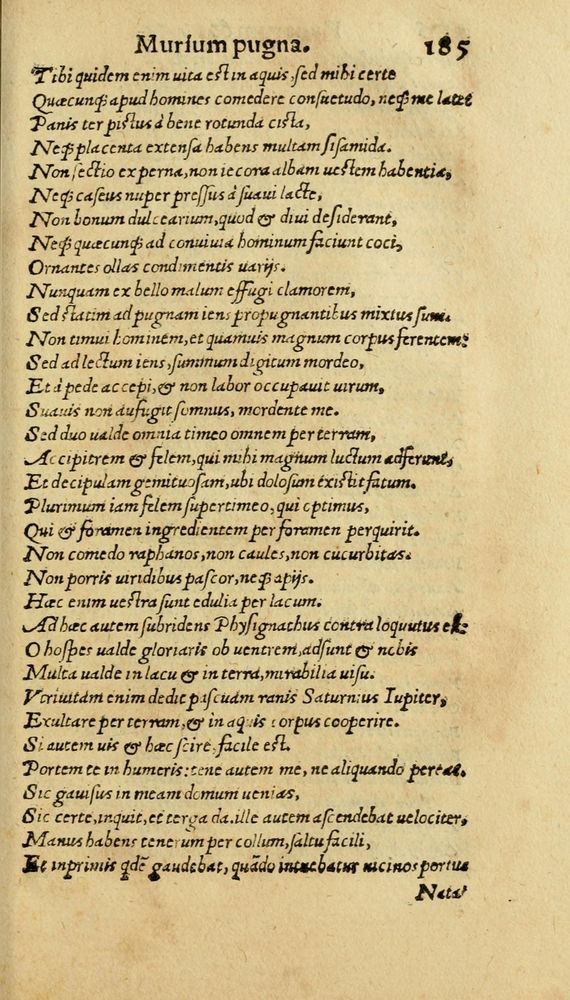 Murium pugna. 185
Tibi quidem enim uita est in aquis, sed mihi certe
Quæcunqꝫ apud homines comedere consuetudo, neqꝫ me latet
Panis ter pistus à bene rotunda cista,
Neqꝫ placenta extensa habens multam sisamida.
Non sectio ex perna, non iecora albam uestem habentia,
Neqꝫ caseus nuper pressus à suaui lacte,
Non bonum dulcearium, quod & diui desiderant,
Neqꝫ quæcunqꝫ ad conuiuia hominum faciunt coci,
Ornantes ollas condimentis uarijs.
Nunquam ex bello malum effugi clamorem,
Sed statim ad pugnam iens propugnantibus mixtus sum.
Non timui hominem, et quamuis magnum corpus ferentem:
Sed ad lectum iens, summum digitum mordeo,
Et à pede accepi, & non labor occupauit uirum,
Suauis non aufugit somnus, mordente me.
Sed duo ualde omnia timeo omnem per terram,
Accipitrem & felem, qui mihi magnum luctum adferunt,
Et decipulam gemituosam, ubi dolosum existit fatum.
Plurimum iam felem supertimeo, qui optimus,
Qui & foramen ingredientem per foramen perquirit.
Non comedo raphanos, non caules, non cucurbitas.
Non porris uiridibus pascor, neqꝫ apijs.
Hæc enim uestra sunt edulia per lacum.
Ad hæc autem subridens Physignathus contra loquutus est:
O hospes ualde gloriaris ob uentrem, adsunt & nobis
Multa ualde in lacu & in terra, mirabilia uisu.
Vtriuitam enim dedit pascuam ranis Saturnius Iupiter,
Exultare per terram, & in aquis corpus cooperire.
Si autem uis & hæc scire, facile est.
Portem te in humeris: tene autem me, ne aliquando pereas.
Sic gauisus in meam domum uenias,
Sic certe, inquit, et terga da. ille autem ascendebat uelociter,
Manus habens tenerum per collum, saltu facili,
Et inprimis qdẽ gaudebat, quãdo intuebatur uicinos portus
Nata⸗